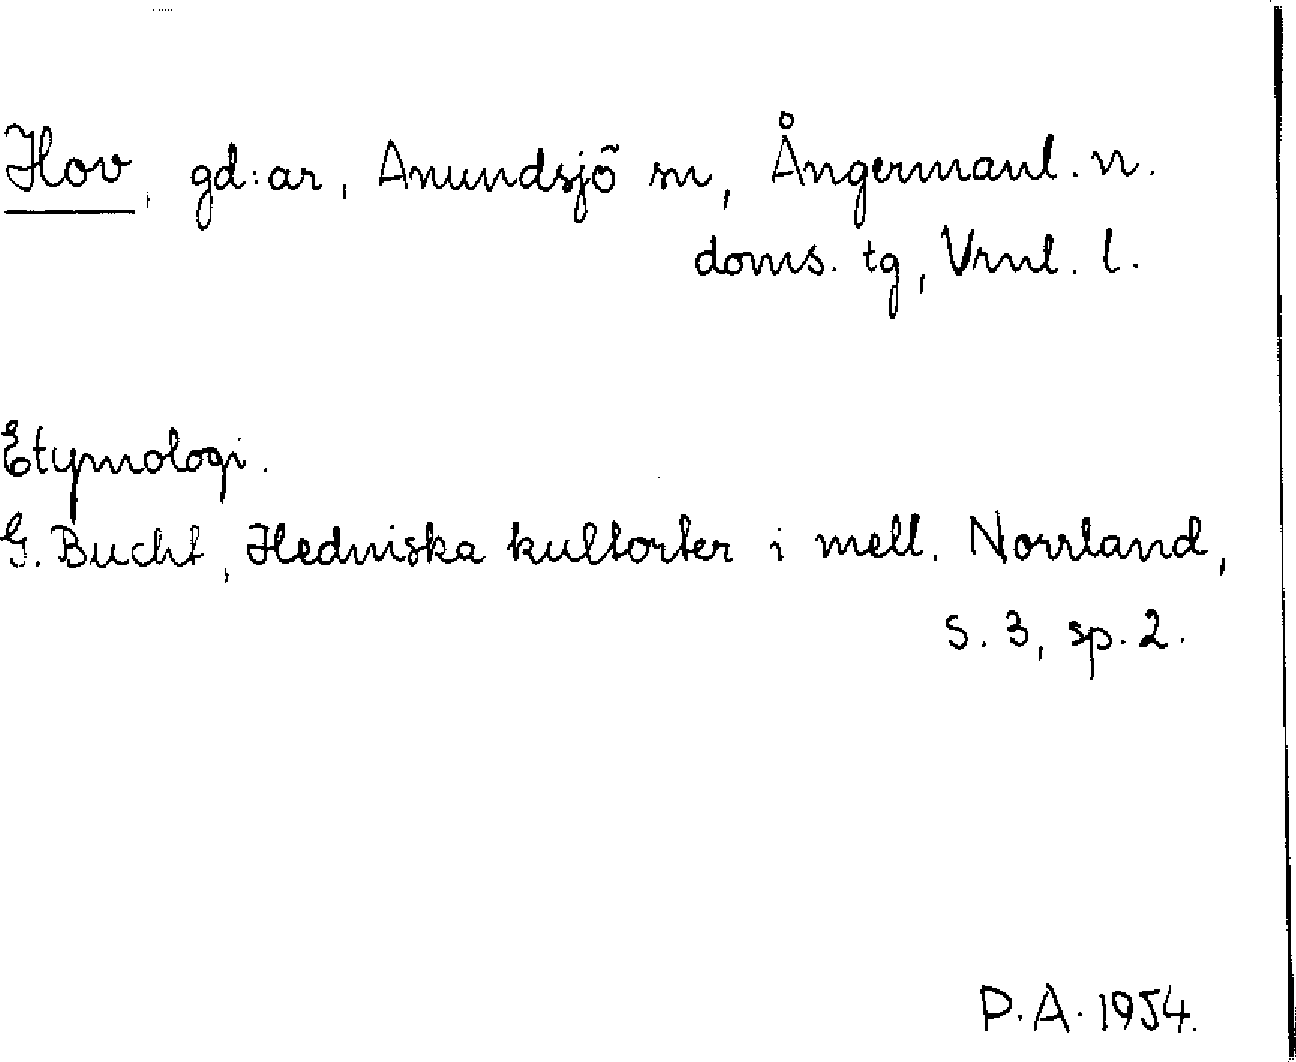 Hov, gd:ar, Anundsjö sn, Ångermanl. n.
doms. tg, Vrnl. l.
Etymologi.
G. Bucht, Hedniska kultorter i mell. Norrland,
s. 3, sp. 2.
P.A. 1954.